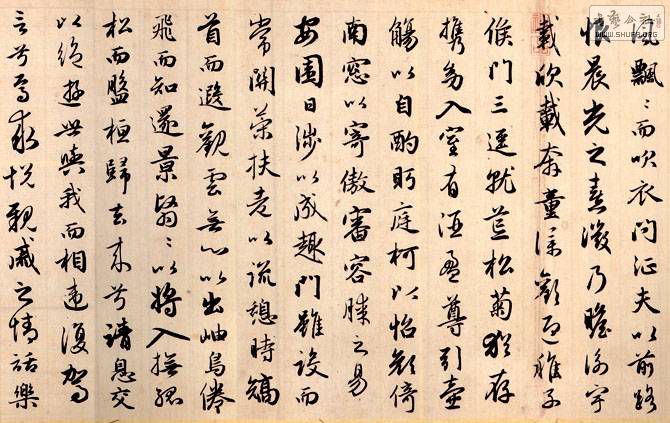 風飄〻而吹衣問征夫以前路
恨晨光之熹微乃瞻衡宇
載欣載奔童僕歡迎稚子
候門三逕就荒松菊猶存
携幼入室有酒盈尊引壺
觴以自酌眄庭柯以怡顏倚
南窓以寄傲審容膝之易
安園日涉以成趣門雖設而
常關策扶老以流憩時矯
首而遐觀雲無心以出岫鳥倦
飛而知還景翳〻以將入撫孤
松而盤桓歸去來兮請息交
以絕遊世與我而相違復駕
言兮焉求悅親戚之情話樂
WWW.SHUFA.ORG